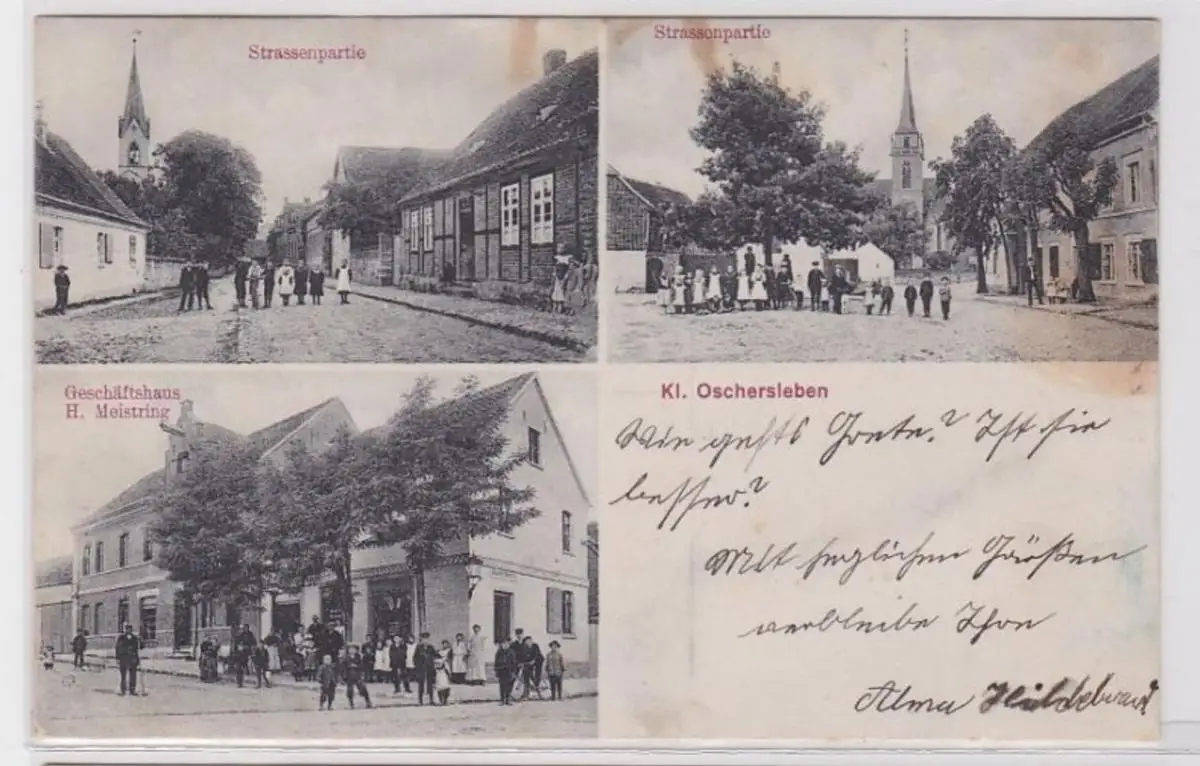 Strassenpartie
Strassenpartie
Geschäftshaus
H. Meistring
Kl. Oschersleben
Wie gehts Grete? Ist sie
besser?
Mit herzlichen Grüßen
verbleibe Ihre
Alma